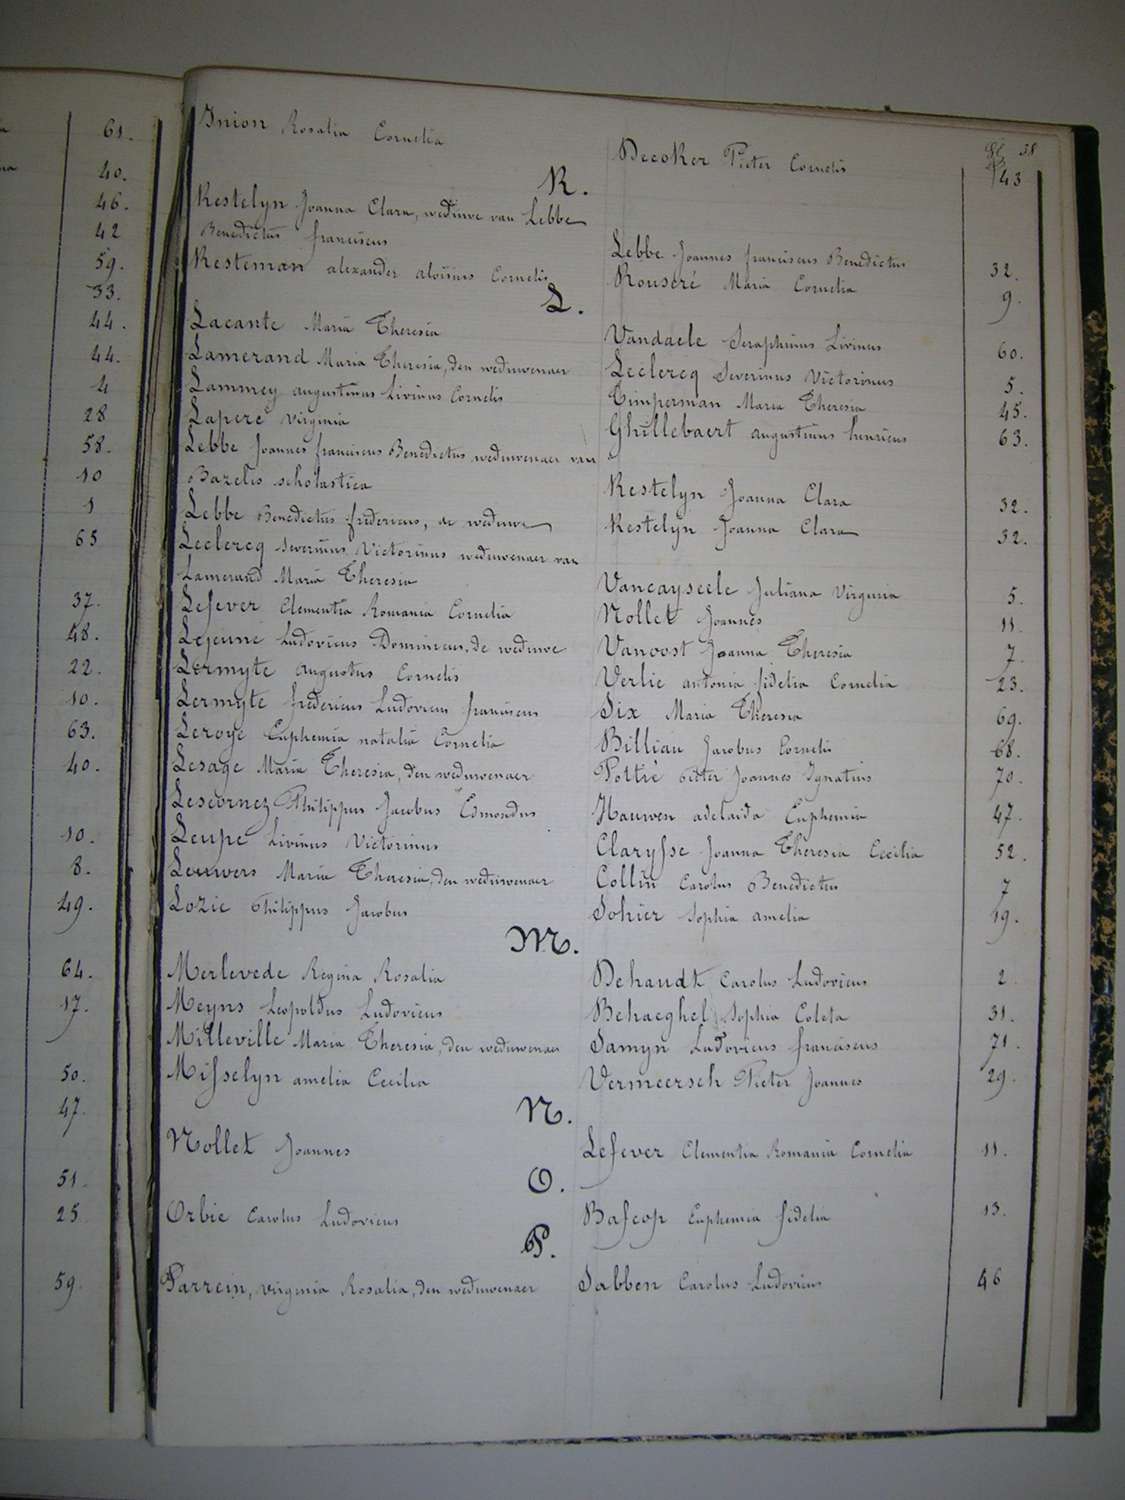 61. Inion Rosalia Cornelia Decoker Pieter Cornelis 43
38
40. K.
46. Kestelyn Joanna Clara, weduwe van Lebbe
42 Benedictus franciscus Lebbe Joannes franciscus Benedictus 32.
59. Kesteman alexander aloisius Cornelis Rouseré Maria Cornelia 9.
33. L.
44. Lacante Maria Theresia Vandaele Seraphinus Livinus 60.
44. Lamerand Maria Theresia, den weduwenaer Leclercq Severinus Victorinus 5.
4 Lammey augustinus Livinus Cornelis Timperman Maria Theresia 45.
28 Laperé virginia Ghillebaert augustinus henricus 63.
58. Lebbe Joannes franciscus Benedictus weduwenaer van
10 Bazelis scholastica Kestelyn Joanna Clara 32.
1 Lebbe Benedictus fredericus, de weduwe Kestelyn Joanna Clara 32.
65 Leclercq Severinus Victorinus weduwenaer van
Lamerand Maria Theresia Vancayseele Juliana Virginia 5.
37. Lefever Clementia Romania Cornelia Nollet Joannes 11.
48. Lejeune Ludovicus Dominicus, de weduwe Vanoost Joanna Theresia 7.
22. Lermyte augustus Cornelis Verlie antonia fidelia Cornelia 23.
10. Lermyte fredericus Ludovicus franciscus Six Maria Theresia 69.
63. Leroye Euphemia natalia Cornelia Billiau Jacobus Cornelis 68.
40. Lesage Maria Theresia, den weduwenaer Pottié Pieter Joannes Ignatius 70.
Lescornez Philippus Jacobus Edmondus Hauwen adelaida Euphemia 47.
10. Leupe Livinus Victorinus Clarysse Joanna Theresia Cecilia 52.
8. Leuwers Maria Theresia, den weduwenaer Collin Carolus Benedictus 7
49. Lozie Philippus Jacobus Sohier Sophia amelia 19.
M.
64. Merlevede Regina Rosalia Dehaudt Carolus Ludovicus 2.
17. Meyns Leopoldus Ludovicus Behaeghel Sophia Coleta 31.
Milleville Maria Theresia, den weduwenaer Samyn Ludovicus franciscus 71.
50. Misselyn amelia Cecilia Vermeersch Pieter Joannes 29.
47. N.
Nollet Joannes Lefever Clementia Romania Cornelia 11.
51. O.
25 Orbie Carolus Ludovicus Bascop Euphemia fidelia 13.
P.
59. Parrein, virginia Rosalia, den weduwenaer Sabben Carolus Ludovicus 46